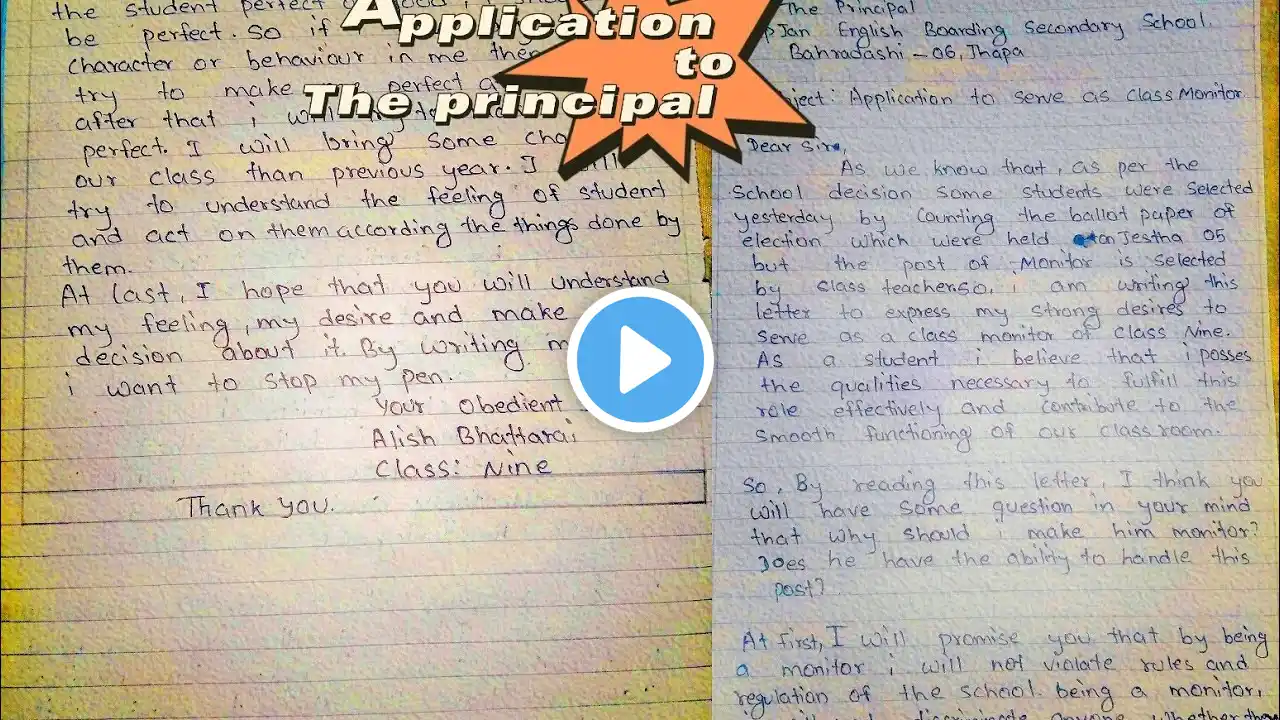 Application
to
The principal
the student perfect
be perfect. So if
character or behaviour in me then
try to make perfect
after that i
perfect. I will bring some
our class than previous year. I
try to understand the feeling of student
and act on them according the things done by
them.
At last, I hope that you will understand
my feeling, my desire and make
decision about it. By writing
i want to stop my pen.
Your obedient
Alish Bhattarai
Class: Nine
Thank you.
The Principal
Jan English Boarding Secondary School.
Bahradashi - 06, Jhapa
: Application to serve as class Monitor
Dear Sir,
As we know that, as per the
School decision some students were selected
yesterday by counting the ballot paper of
election which were held on Jestha 05
but the post of Monitor is selected
by class teacher so, i am writing this
letter to express my strong desires to
serve as a class monitor of class Nine.
As a student i believe that i posses
the qualities necessary to fulfill this
role effectively and contribute to the
smooth functioning of our classroom.
So, By reading this letter, I think you
will have some question in your mind
that why should i make him monitor?
Does he have the ability to handle this
post?
At first, I will promise you that by being
a monitor i will not violate rules and
regulation of the school. being a monitor,
discriminate anyone whether than